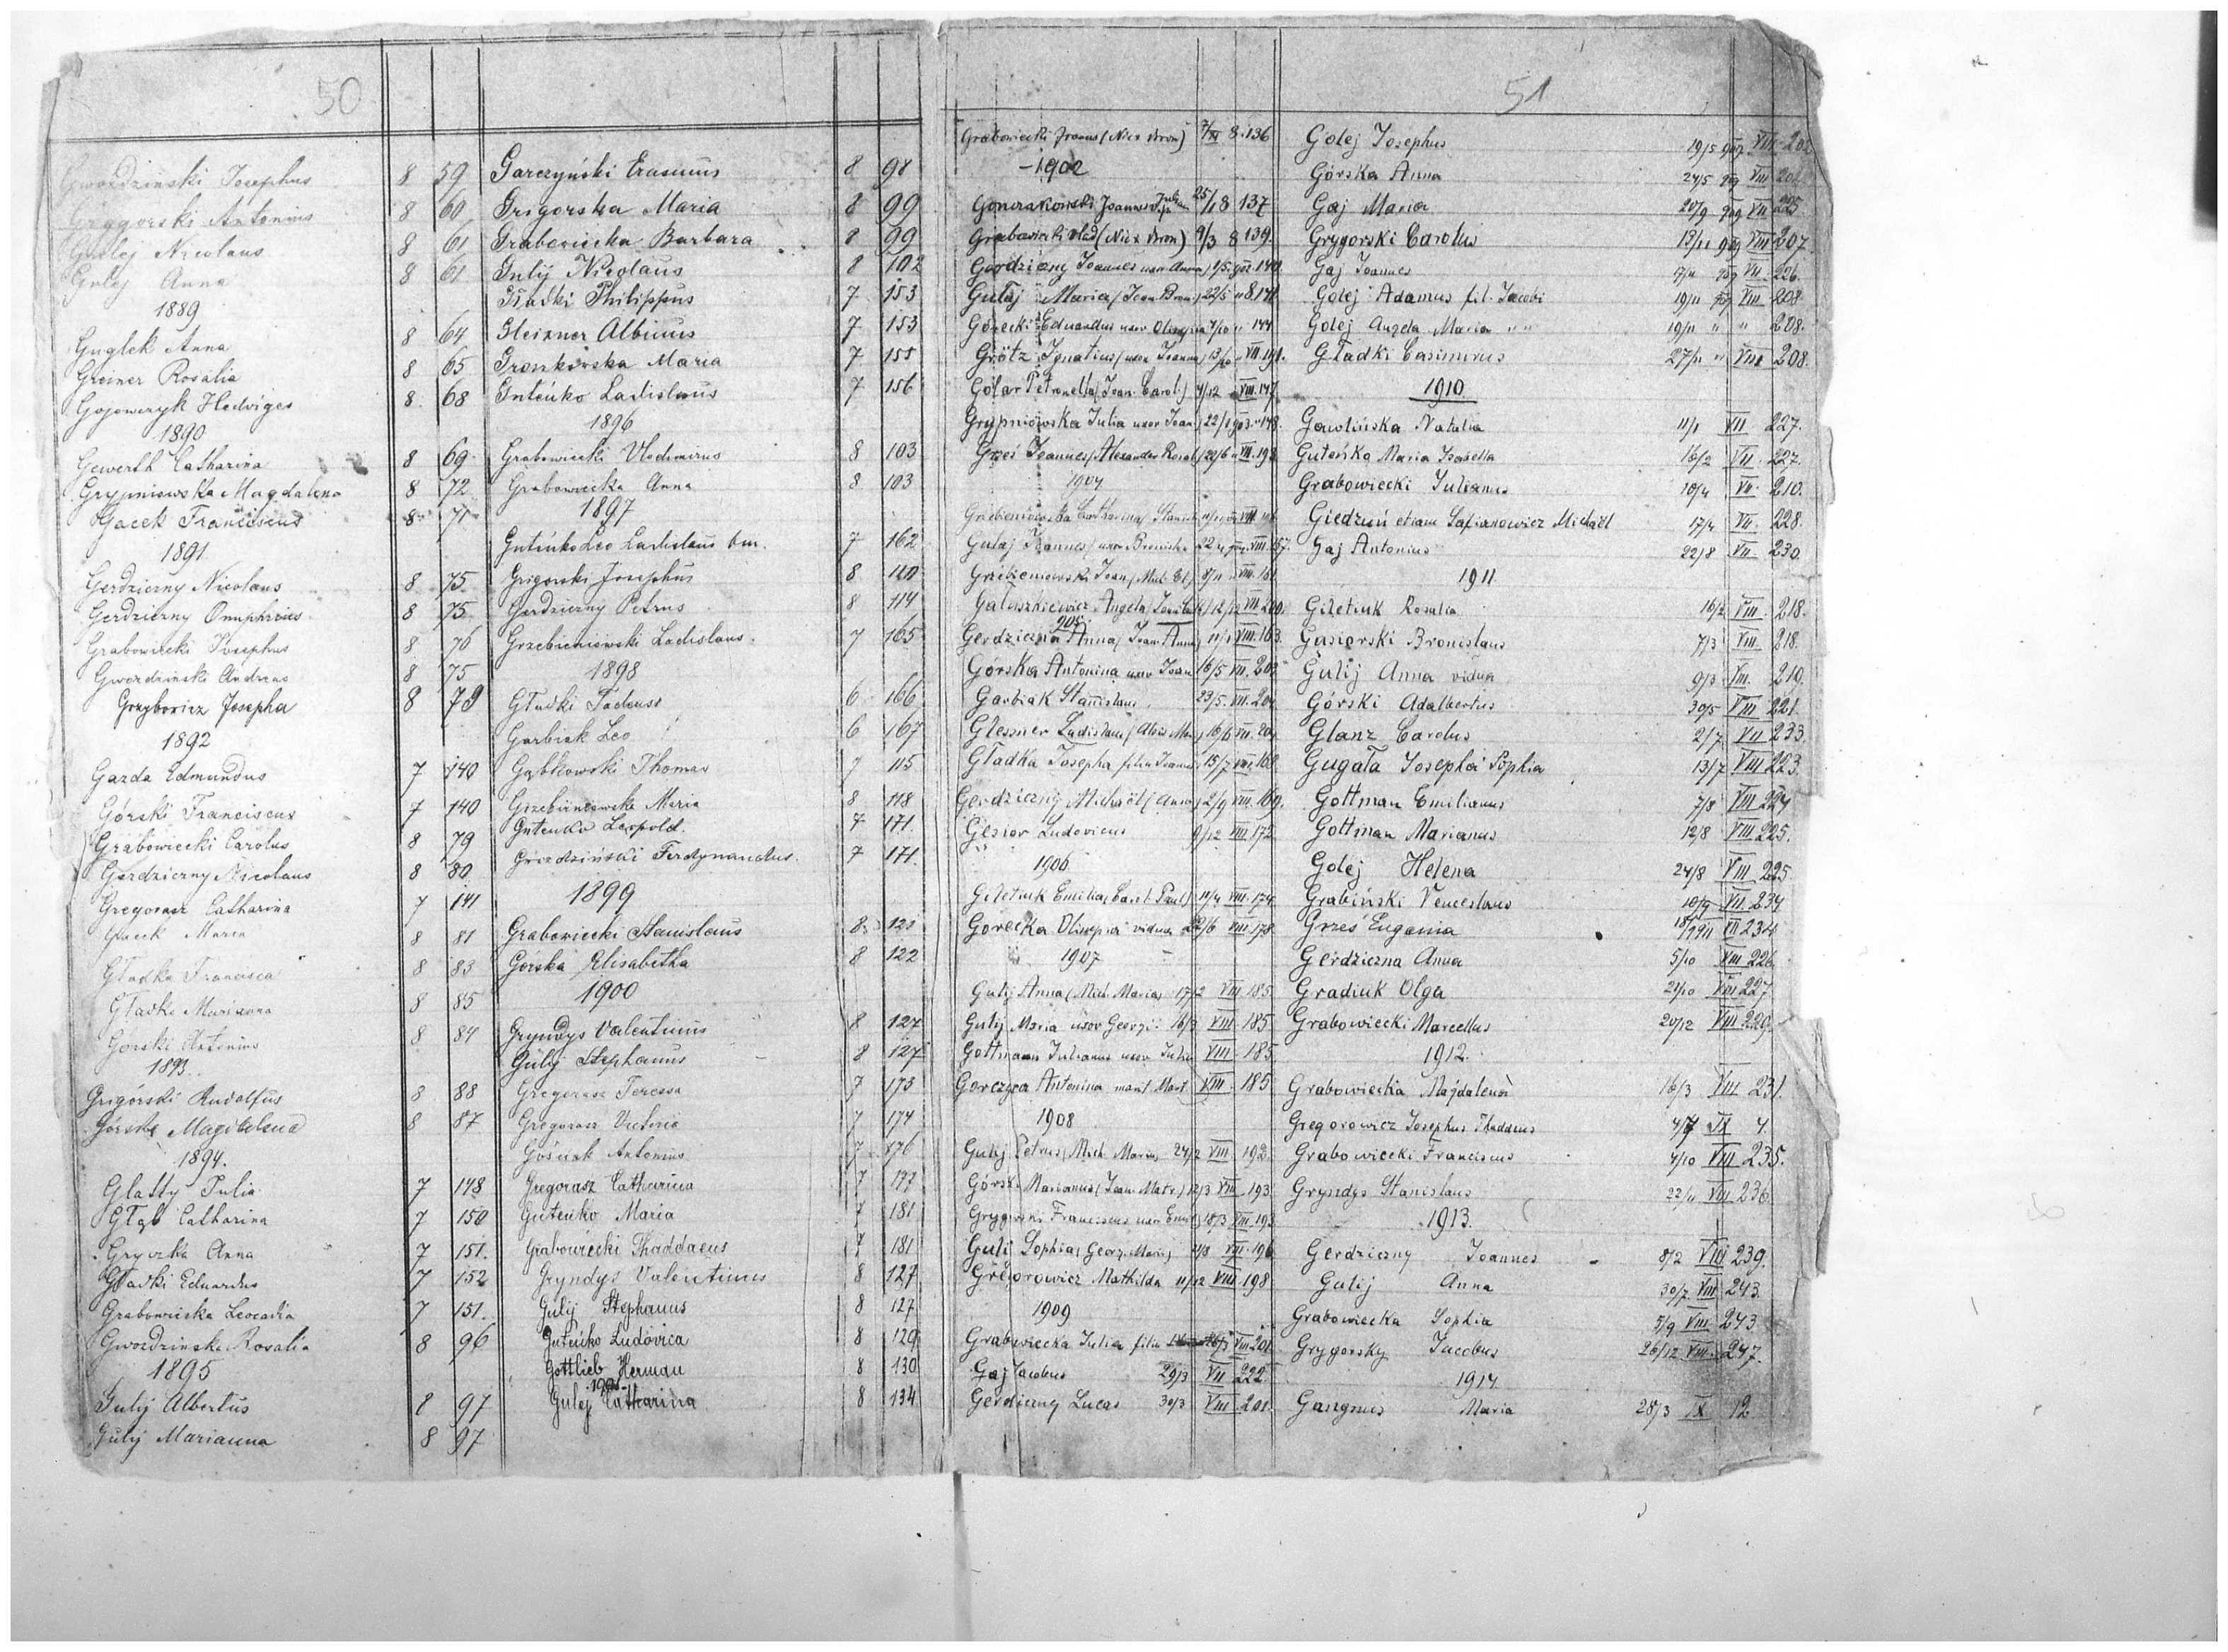 50
Gwoździnski Josephus 8 59
Grygorski Antonius 8 60
Gulej Nicolaus 8 61
Gulej Anna 8 61
1889
Guglek Anna 8 64
Greiner Rosalia 8 65
Gojowczyk Hedviges 8 68
1890
Gewerth Catharina 8 69
Grypniewska Magdalena 8 72
Gacek Franciscus 8 71
1891
Gerdzierny Nicolaus 8 75
Gerdzierny Onuphrius 8 75
Grabowiecki Josephus 8 76
Gwozdzinski Andreas 8 75
Grzybowicz Josepha 8 79
1892
Gazda Edmundus 7 140
Górski Franciscus 7 140
Grabowiecki Carolus 8 79
Gerdzierny Nicolaus 8 80
Gregorasz Catharina 7 141
Gacek Maria 8 81
Gładka Francisca 8 83
Gładka Marianna 8 85
Górski Antonius 8 84
1893
Grigórski Rudolfus 8 88
Górska Magdalena 8 87
1894.
Glatty Julia 7 148
Głąb Catharina 7 150
Anna 7 151.
Gładki Eduardus 7 152
Grabowiecka Leocadia 7 151.
Gwozdzinska Rosalia 8 96
1895
Gulij Albertus 8 97
Gulij Marianna 8 97
Garczyński Erasmus 8 98
Grigorska Maria 8 99
Grabowiecka Barbara 8 99
Gulij Nicolaus 8 102
Gładki Philippus 7 153
Gleixner Albinus 7 153
Gronkowska Maria 7 155
Guteńko Ladislaus 7 156
1896
Grabowiecki Vlodimirus 8 103
Grabowiecka Anna 8 103
1897
Guteńko Leo Ladislaus bm. 7 162
Grigorski Josephus 8 110
Gerdzierny Petrus 8 114
Grzebieniowski Ladislaus 7 165
1898
Gładki Tadeusz 6 166
Garbiak Leo 6 167
Gąbkowski Thomas 7 115
Grzebieniowska Maria 8 118
Gutenko Leopold. 7 171.
Gwoździński Ferdynandus. 7 171.
1899
Grabowiecki Stanislaus 8 121
Górska Elisabetha 8 122
1900
Gryndys Valentinus 8 127
Gulij Stephanus 8 127
Gregorasz Teressa 7 173
Gregorasz Victoria 7 174
Gośniak Antonius 7 176
Gregorasz Catharina 7 177
Gutenko Maria 7 181
Grabowiecki Thaddaeus 7 181
Gryndys Valentinus 8 127
Gulij Stephanus 8 127
Guteńko Ludovica 8 129
Gottlieb Herman 8 130
Gulej Catharina 8 134
51
Grabowiecki (Nic x Bron) 8. 136
-1902
Joannes 25/1 8 137
Grabowiecki Vlad (Nic x Bron) 9/3 8 139.
Gerdzierny Joannes uxor Anna
Gulaj Maria (Joan Bron.) 22/5
Górecki Eduardus uxor Olimpia 144
Grötz Ignatius (uxor Joanna)
Golar Petronella (Joan. Carol.) 4/12 VIII. 147
Grypniowska Julia uxor Joan. 22/1 148.
Grześ Joannes (Alexander Rosal.) 20/6 VII. 198
1904
Gulaj Joannes uxor 22/4 VIII. 157.
Grzebieniowski Joan
Gałuszkiewicz Angela
905
Gerdziczna Anna (Joan. Anna) VIII. 163.
Górska Antonina uxor Joan 16/5 VII. 203
Garbiak Stanislaus 23/5. VII. 204
Glessner Ladislaus 16/6 VII. 204
Gładka Josepha filia Joannis 15/7 VIII. 168
Gerdziczny Michaël (Anna) 2/9 VIII. 169.
Glesior Ludovicus 9/12 VIII. 172
1906
Giletiuk Emilia 11/4 VIII. 174
Gorecka Olimpia vidua 22/6 VIII. 178
1907
Gulij Anna (Mich. Maria) 17/2 VIII 185
Gulij Maria uxor Georgii 16/3 VIII 185
Gottmann Julianus uxor Julia VIII 185
Gorczyca Antonina VIII. 185
1908
Gulij Petrus (Mich. Maria) 24/2 VIII 192.
Górski Marianus 12/3 VIII 193
Grygorski Franciscus uxor Emil. 18/3 VIII. 193
Gulij Sophia (Georg. Maria) 21/8 VIII. 196
Gregorowicz Mathilda 11/12 VIII. 198
1909
Grabowiecka Julia filia VIII 201
Gaj Jacobus 29/3 VII 222.
Gerdiczny Lucas 30/3 VIII 201.
Golej Josephus 19/5 909 VIII
Górska Anna 24/5 909 VIII
Gaj Maria 20/9 909 VII 225
Grygorski Carolus 13/11 909 VIII 207.
Gaj Joannes 909 VII. 226.
Golej Adamus fil. Jacobi 19/11 VIII. 208.
Golej Angela Maria " " 19/11 " " 208.
Gładki Casimirus 27/11 " VIII 208.
1910
Gawlińska Natalia 11/1 VII 227.
Guteńka Maria Isabella 16/2 VII. 227.
Grabowiecki Julianus 10/4 VII. 210.
Giedzuń etiam Safianowicz Michaël 17/4 VII. 228.
Gaj Antonius 22/8 VII. 230
1911
Giletiuk Rosalia 16/2 VIII. 218.
Gąsiorski Bronislaus 7/3 VIII. 218.
Gulij Anna vidua 9/3 VIII. 219.
Górski Adalbertus 30/5 VIII 221.
Glanz Carolus 2/7 VII 233.
Gugała Josepha Sophia 13/7 VIII 223.
Gottman Emilianus 7/8 VIII 224
Gottman Marianus 12/8 VIII 225.
Golej Helena 24/8 VIII 225.
Grabiński Venceslaus 10/9 VII. 234
Grześ Eugenia VII 234
Gerdziczna Anna 5/10 VIII 226.
Gradiuk Olga 21/10 VIII 227
Grabowiecki Marcellus 20/12 VIII 229.
1912.
Grabowiecka Magdalena 16/3 VIII 231.
Gregorowicz Josephus Thaddeus 4/7 IX 4.
Grabowiecki Franciscus 4/10 VIII 235.
Gryndys Stanislaus 22/11 VIII 236.
1913.
Gerdziczny Joannes 8/2 VIII 239.
Gulij Anna 30/7 VIII 243.
Grabowiecka Sophia 5/9 VIII 243
Grygorsky Jacobus 26/12 VIII. 247.
1914
Gangnus Maria 28/3 IX 12